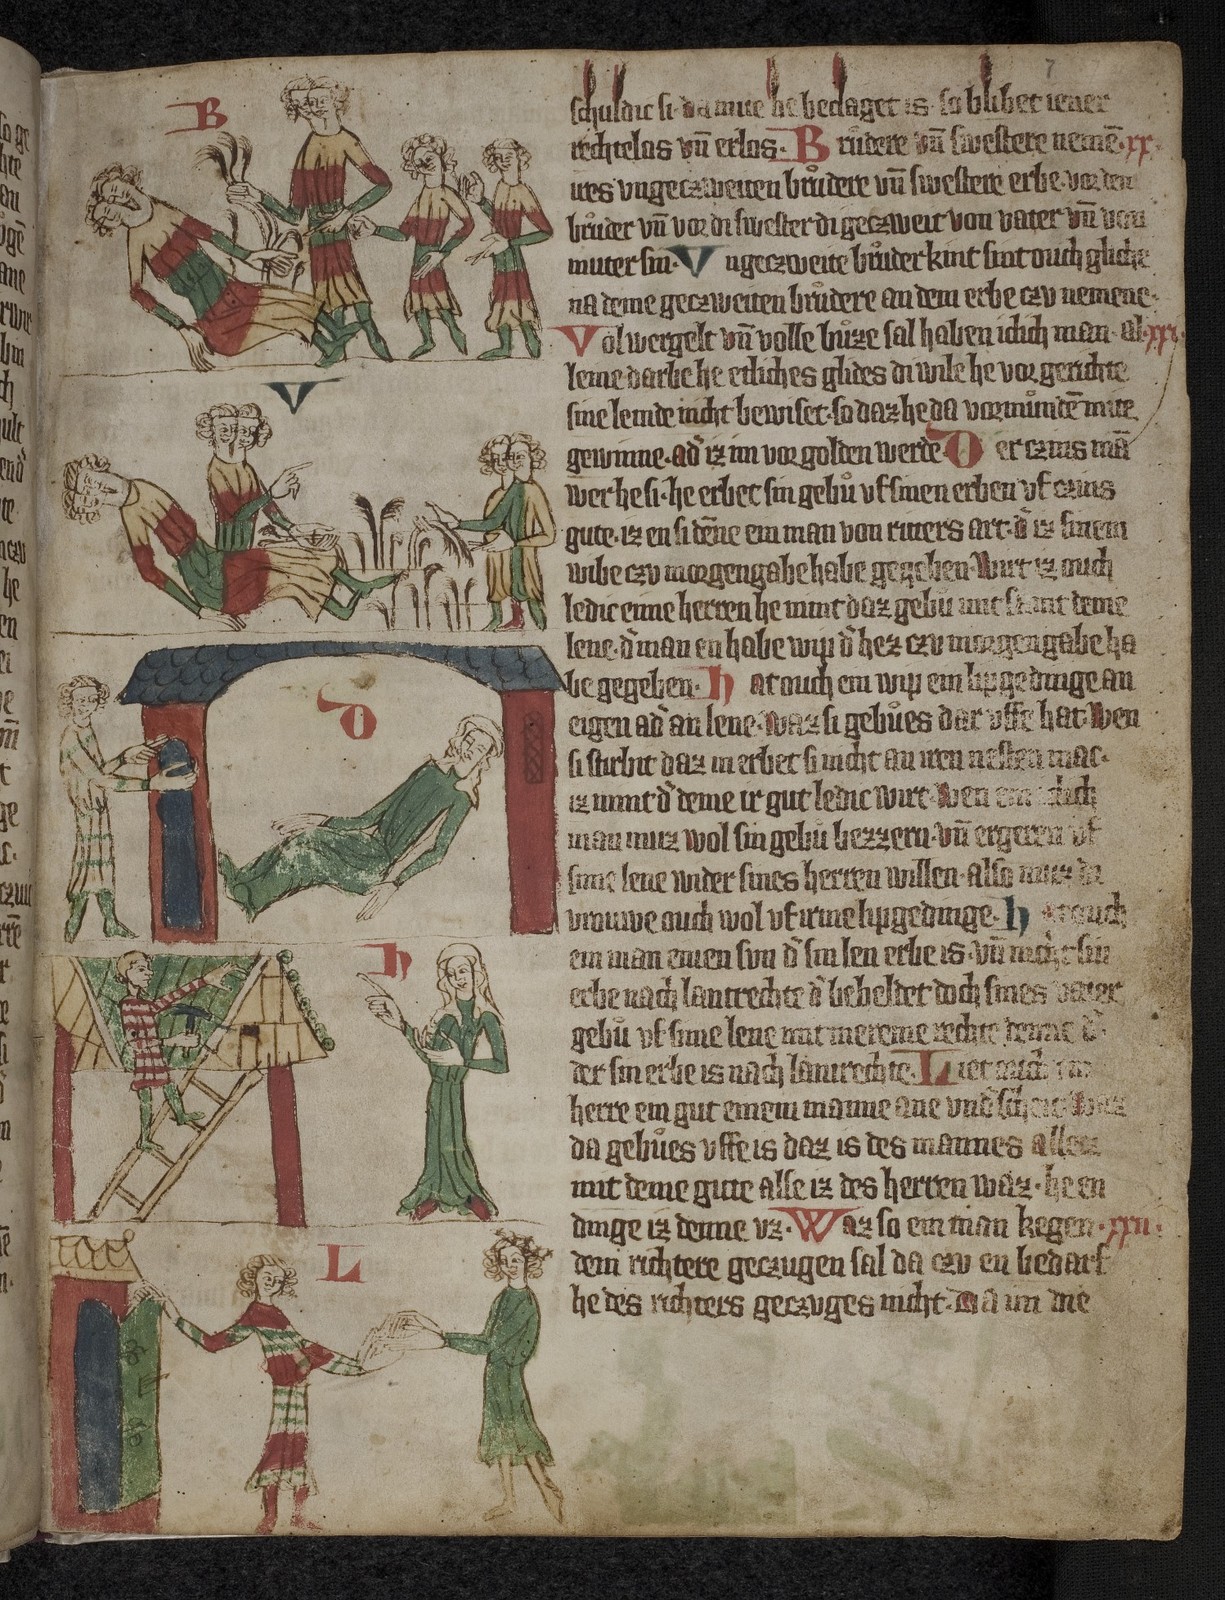 7
schuldic si. da mite he beclaget is. so blibet iener
rechtelos vn̄ erlos. Brůdere vn̄ swestere nemē .xx.
ires vngeczweiten brůdere vn̄ swestere erbe. vor den
brůder vn̄ vor di swester di geczweit von vater vn̄ von
muter sin. Vngeczweite brůder kint sint ouch gliche
na deme geczweiten brůdere an dem erbe czv nemene.
Vol wergelt vn̄ volle bůze sal haben iclich man. al .xxi.
leine darbe he etliches glides di wile he vor gerichte
sine lemde nicht bewiset. so daz he da vormůndē mite
gewinne. ad' iz im vorgolden werde. Der czins mā
wer he si. he erbet sin gebů vf sinen erben vf czins
gute. iz en si dēne ein man von ritters art. d' iz sinem
wibe czv morgengabe habe gegeben. Wirt iz ouch
ledic eime herren he nimt daz gebů mit samt deme
lene. d' man en habe wip d' hez czv morgengabe ha
be gegeben. Hat ouch ein wip ein lipgedinge an
eigen ad' an lene. waz si gebůes dar vffe hat. wen
si stirbit daz in erbet si nicht an iren nesten mac.
iz nimt d' deme ir gut ledic wirt. Wen ein iclich
man muz wol sin gebů bezzern. vn̄ ergeren vf
sime lene wider sines herren willen. Also muz di
vrouwe ouch wol vf irme lipgedinge. Hat ouch
ein man einen svn d' sin len erbe is. vn̄ nicht sin
erbe nach lantrechte d' beheldet doch sines vater
gebů vf sime lene mit mereme rechte denne d'
der sin erbe is nach lantrechte. Liet ouch ein
herre ein gut eineme manne ane vnd'scheit. waz
da gebůes vffe is daz is des mannes allez
mit deme gute alse iz des herren waz. he en
dinge iz denne vz. Waz so ein man kegen .xxii.
dem richtere geczugen sal da czv en bedarf
he des richters geczuges nicht. Da im die
B
V
D
H
L